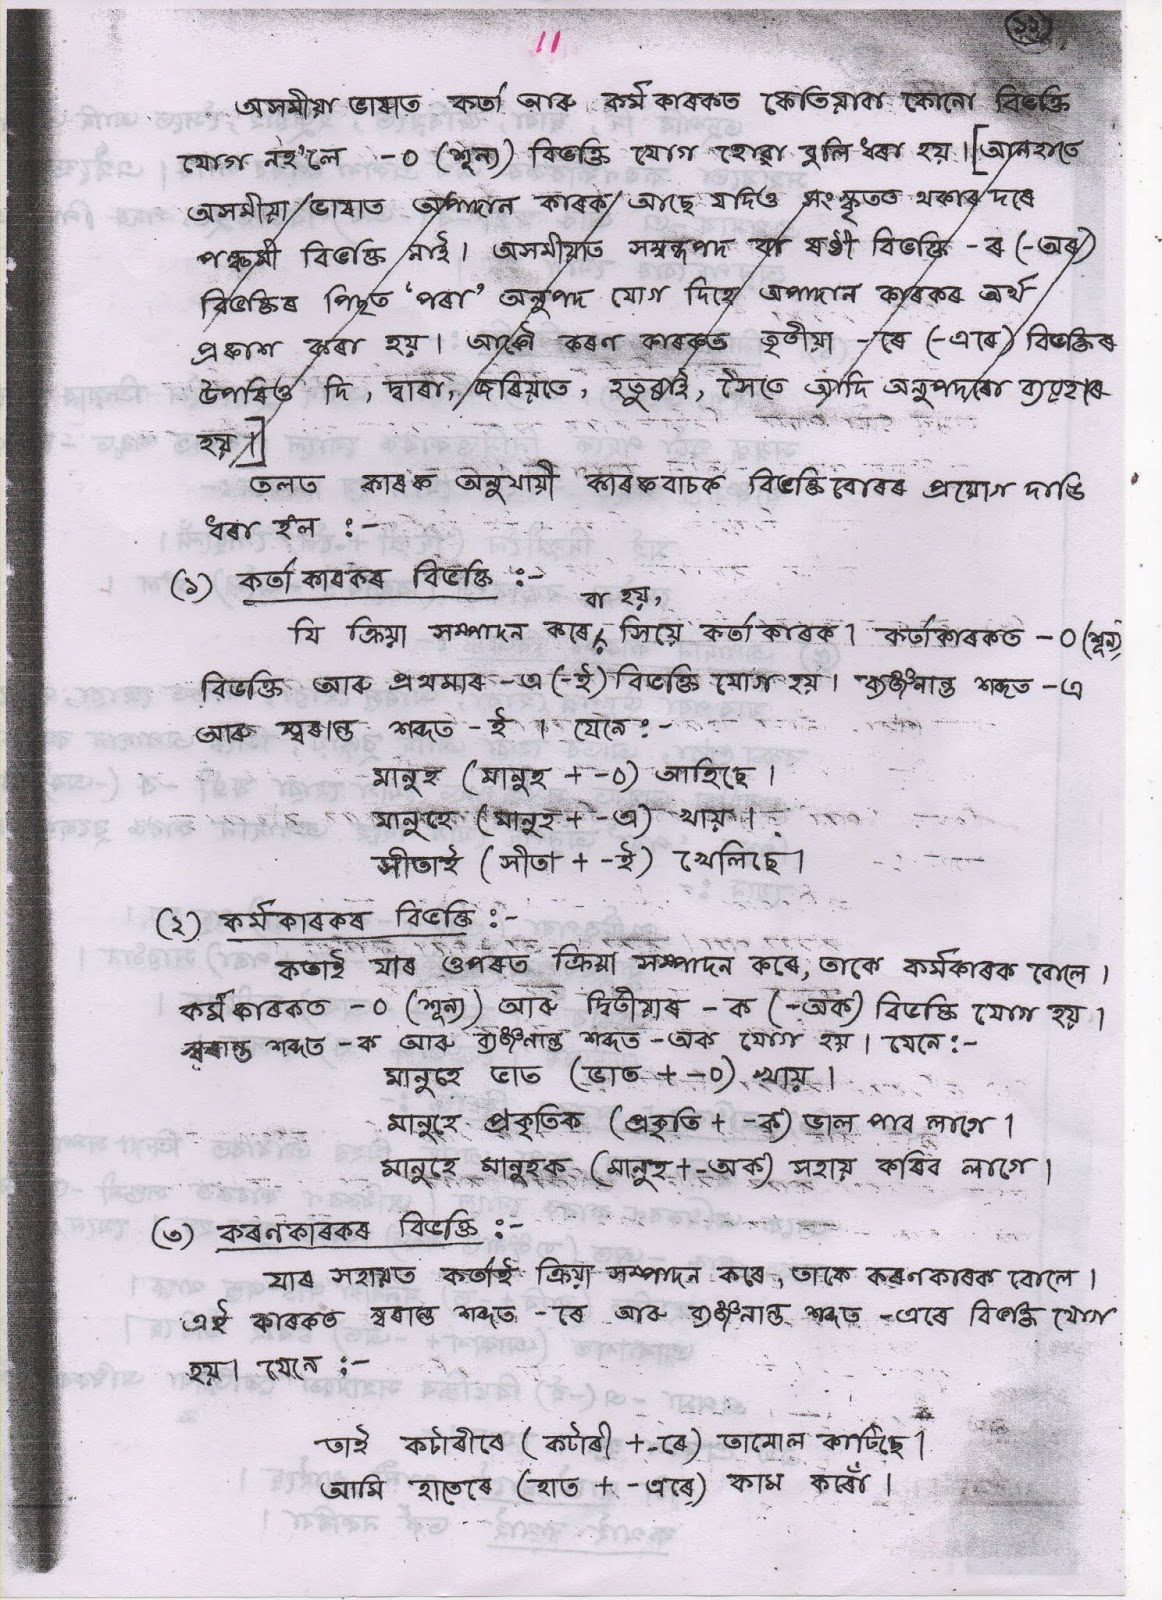 ১১
11
অসমীয়া ভাষাত কৰ্তা আৰু কৰ্ম কাৰকত কেতিয়াবা কোনো বিভক্তি
যোগ নহ'লে -০ (শূন্য) বিভক্তি যোগ হোৱা বুলি ধৰা হয়। [আনহাতে
অসমীয়া ভাষাত অপাদান কাৰক আছে যদিও সংস্কৃতত থকাৰ দৰে
পঞ্চমী বিভক্তি নাই। অসমীয়াত সম্বন্ধপদ বা ষষ্ঠী বিভক্তি -ৰ (-অৰ)
বিভক্তিৰ পিছত 'পৰা' অনুপদ যোগ দিহে অপাদান কাৰকৰ অৰ্থ
প্ৰকাশ কৰা হয়। আকৌ কৰণ কাৰকত তৃতীয়া -ৰে (-এৰে) বিভক্তিৰ
উপৰিও দি, দ্বাৰা, জৰিয়তে, হতুৱাই, সৈতে আদি অনুপদৰো ব্যৱহাৰ
হয়।]
তলত কাৰক অনুযায়ী কাৰকবাচক বিভক্তিবোৰৰ প্ৰয়োগ দাঙি
ধৰা হ'ল :-
(১) কৰ্তাকাৰকৰ বিভক্তি :-
বা হয়,
যি ক্ৰিয়া সম্পাদন কৰে, সিয়ে কৰ্তাকাৰক। কৰ্তাকাৰকত -০ (শূন্য)
বিভক্তি আৰু প্ৰথমাৰ -এ (-ই) বিভক্তি যোগ হয়। ব্যঞ্জনান্ত শব্দত -এ
আৰু স্বৰান্ত শব্দত -ই । যেনে :-
মানুহ (মানুহ + -০) আহিছে।
মানুহে (মানুহ + -এ) খায়।
সীতাই (সীতা + -ই) খেলিছে।
(২) কৰ্মকাৰকৰ বিভক্তি :-
কৰ্তাই যাৰ ওপৰত ক্ৰিয়া সম্পাদন কৰে, তাকে কৰ্মকাৰক বোলে।
কৰ্মকাৰকত -০ (শূন্য) আৰু দ্বিতীয়াৰ -ক (-অক) বিভক্তি যোগ হয়।
স্বৰান্ত শব্দত -ক আৰু ব্যঞ্জনান্ত শব্দত -অক যোগ হয়। যেনে :-
মানুহে ভাত (ভাত + -০) খায়।
মানুহে প্ৰকৃতিক (প্ৰকৃতি + -ক) ভাল পাব লাগে।
মানুহে মানুহক (মানুহ + -অক) সহায় কৰিব লাগে।
(৩) কৰণকাৰকৰ বিভক্তি :-
যাৰ সহায়ত কৰ্তাই ক্ৰিয়া সম্পাদন কৰে, তাকে কৰণকাৰক বোলে।
এই কাৰকত স্বৰান্ত শব্দত -ৰে আৰু ব্যঞ্জনান্ত শব্দত -এৰে বিভক্তি যোগ
হয়। যেনে :-
তাই কটাৰীৰে (কটাৰী + -ৰে) তামোল কাটিছে।
আমি হাতেৰে (হাত + -এৰে) কাম কৰোঁ।